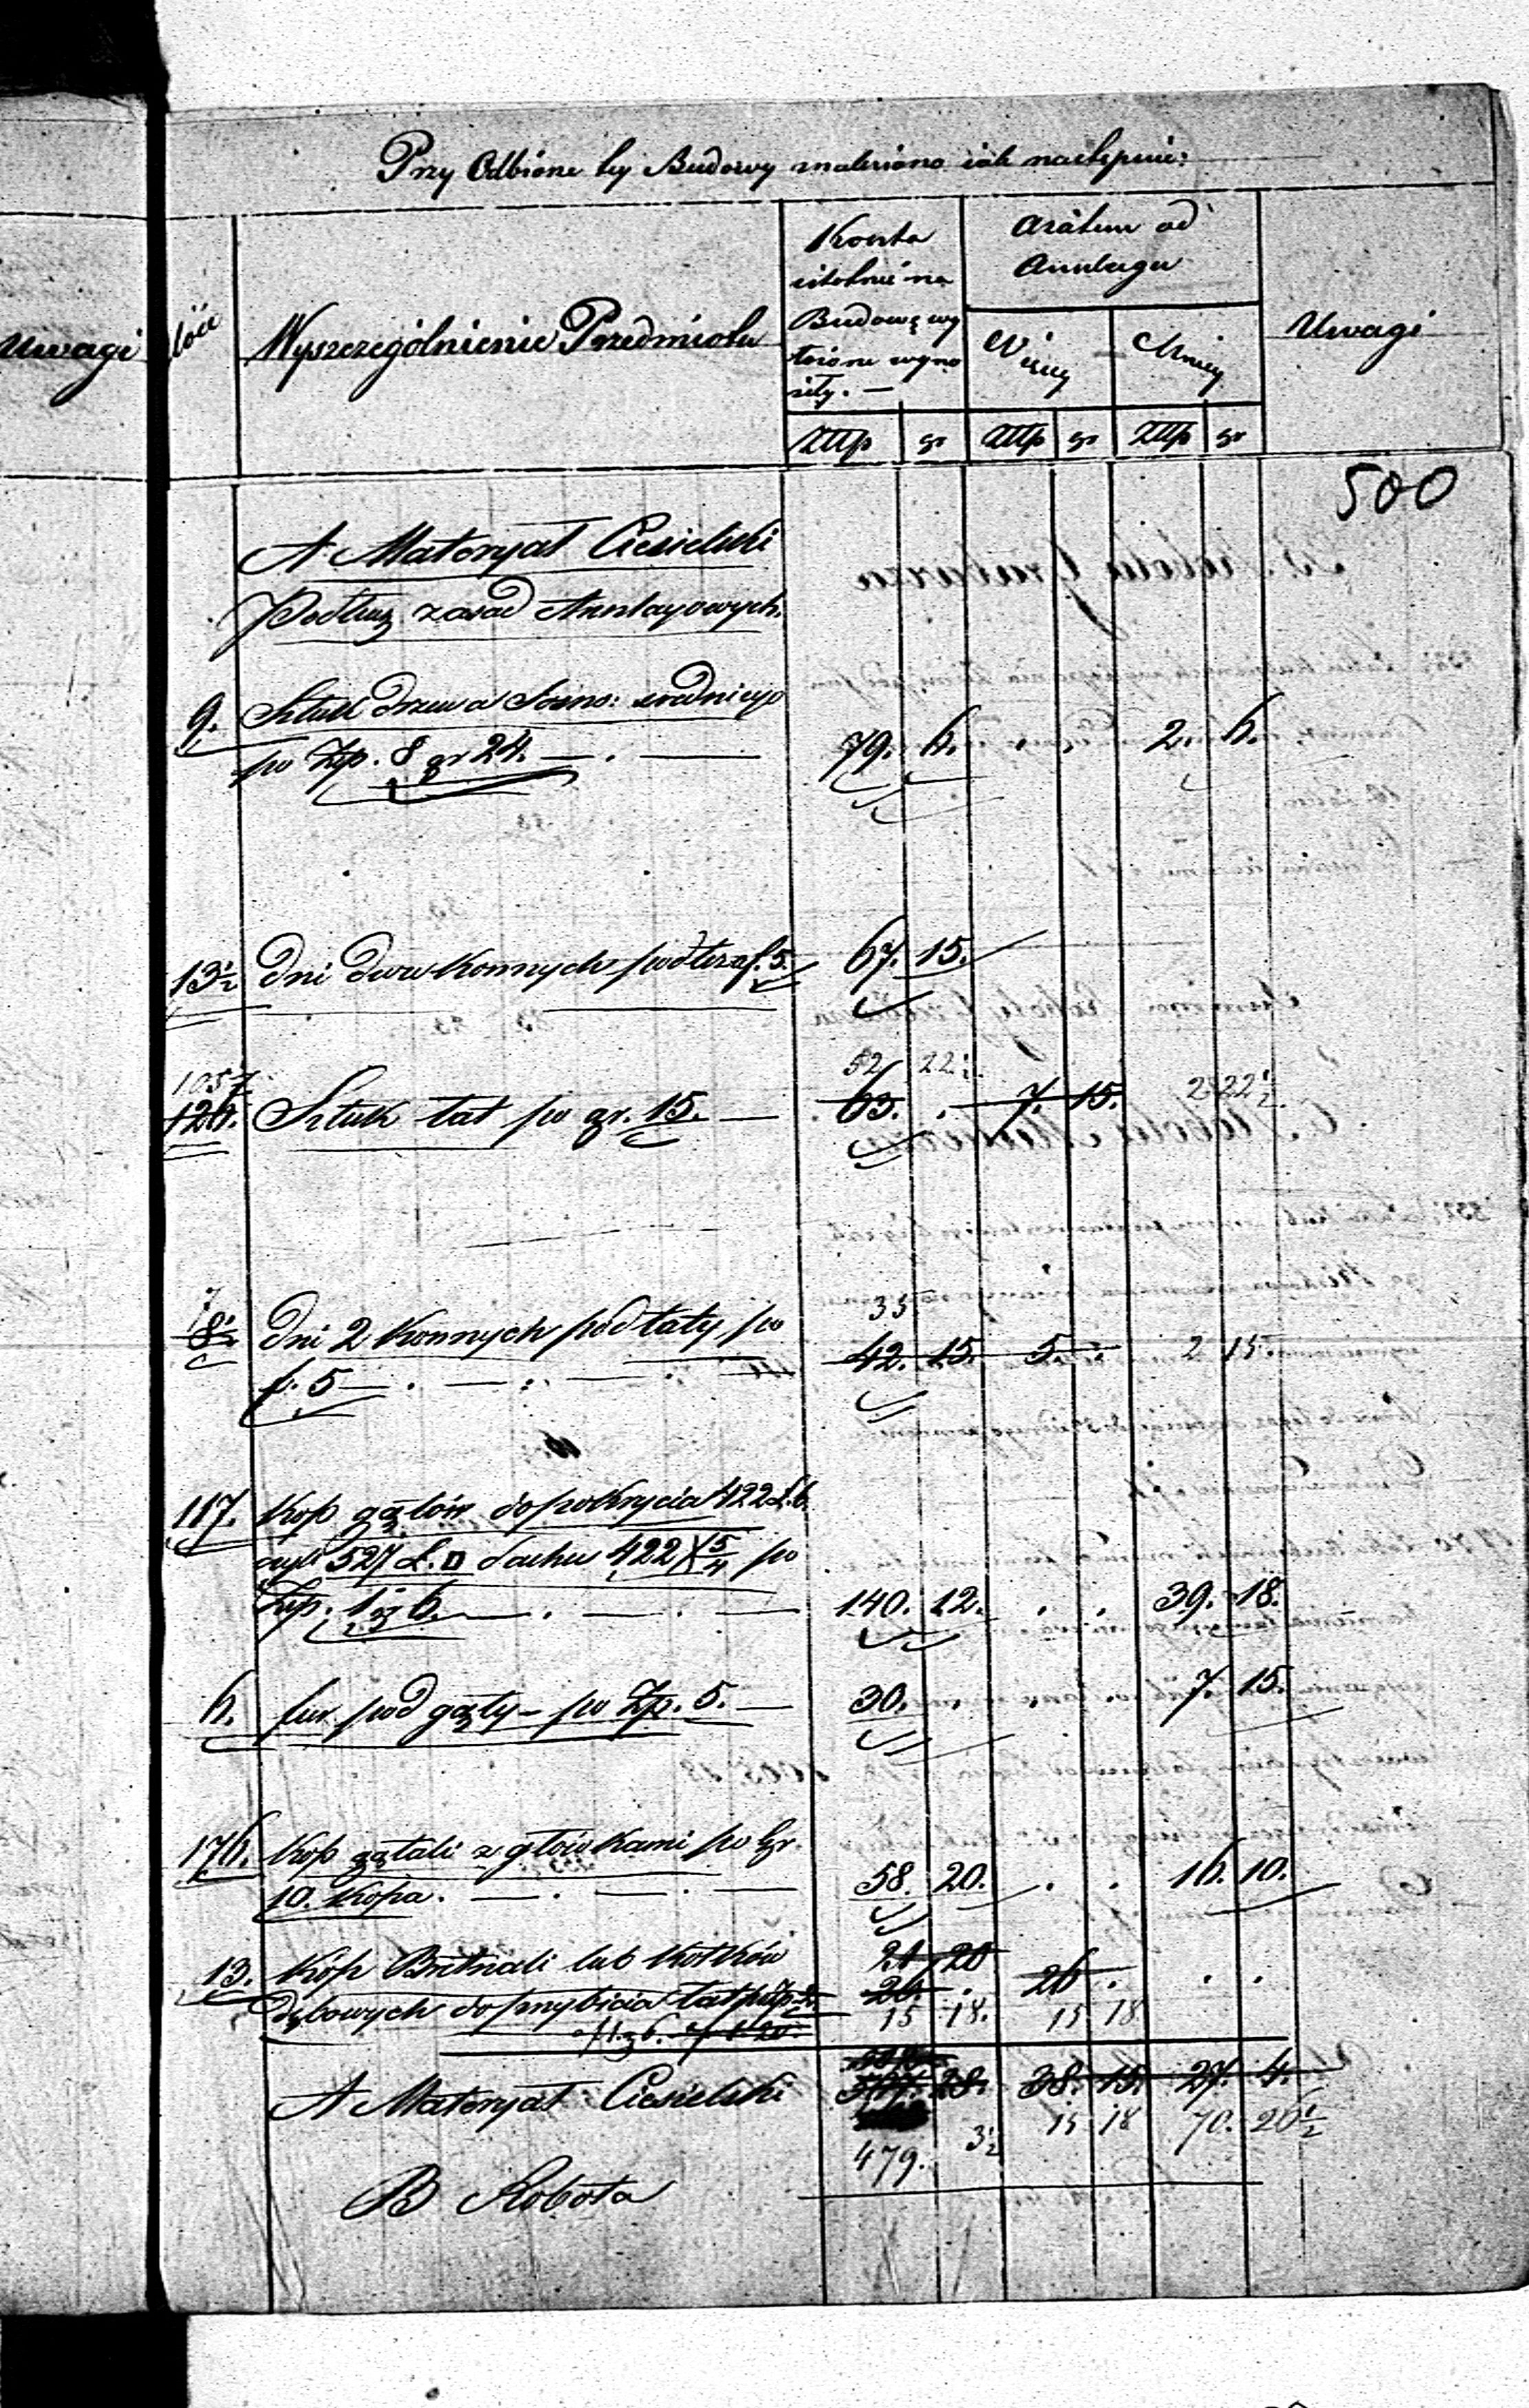 Przy Odbiorze tey Budowy znaleziono iak następnie:
Uwagi
Ilość
Wyszczególnienie Przedmiotu
Koszta
istotnie na
Budowę wy
łożone wyno
siły. —
a zátem od
Anszlagu
Więcey
Mniey
Uwagi
Złlp gr Złlp gr Złlp gr
500
A Materyał Ciesielski
Podług zasad Anszlagowych.
9. Sztuk drzewa Sosno: średniego
po Zp. 8 gr 24. — . — 79. 6. . . 2. 6.
13½ dni dwu konnych pod toż a f. 5. 67. 15.
105½ 52 22½ 2 22½
126. Sztuk łat po gr. 15. — 63. . 7. 15.
7 35
8½ dni 2 konnych pod łaty po 42. 15. 5. . 2 15.
f. 5 — . — . — . —
117. Kop gątów do pokrycia 422 Ł.b.
czyli 527 Ł.□ dachu 422 X 5/4 po
Złp. 1 g 6. — . — . — 140. 12. . . 39. 18.
6. fur pod gąty — po Zp. 5. — 30. . . . 7. 15.
176. Kop gątali z główkami po gr.
10. Kopa. — . — . — 58. 20. . . 16. 10.
13. Kóp Bretnali lub Kołków 21 20
dębowych do przybicia łat po Zp. 2. 26. . 26 . . .
f 1. g 6. f 1 20. 15 18. 15 18
A Materyał Ciesielski 28. 38. 15. 27. 4.
15 18 70. 26½
479. 3½
B Robota